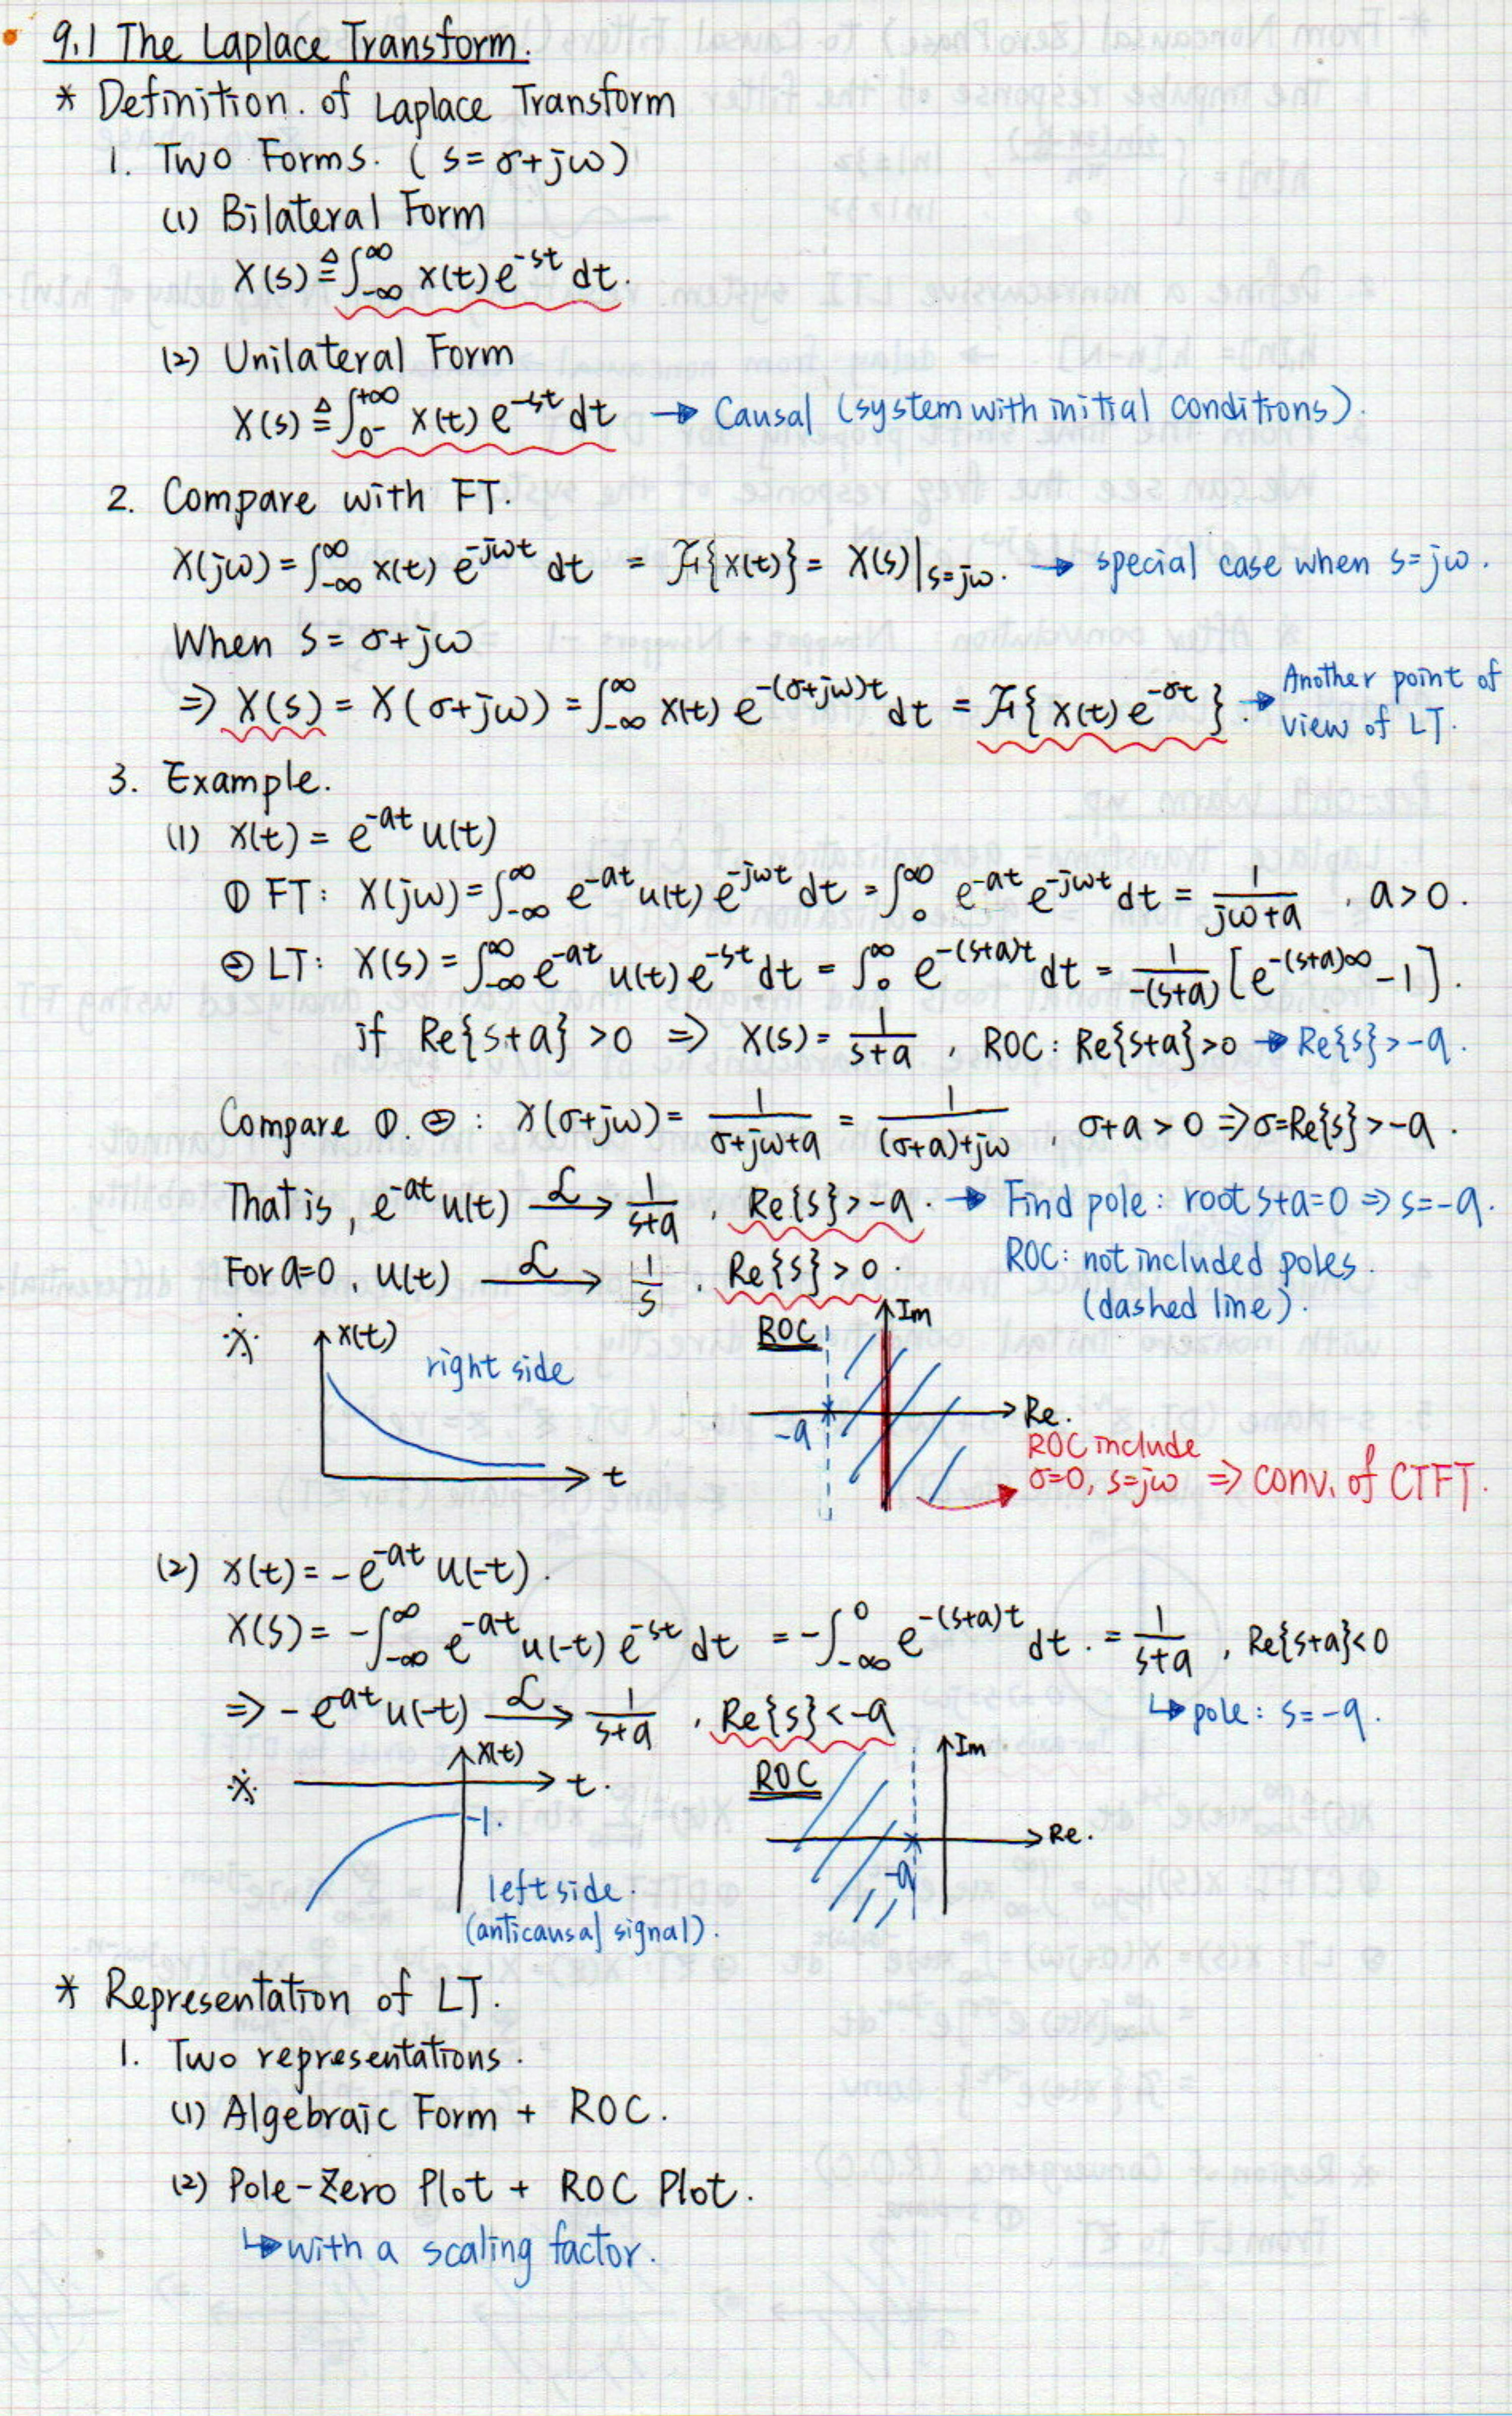 9.1 The Laplace Transform.
* Definition. of Laplace Transform
1. Two Forms. ( s=σ+jω)
(1) Bilateral Form
X(s) ≜ ∫_{-∞}^{∞} x(t) e^{-st} dt.
(2) Unilateral Form
X(s) ≜ ∫_{0-}^{+∞} x(t) e^{-st} dt → Causal (system with initial conditions).
2. Compare with FT.
X(jω) = ∫_{-∞}^{∞} x(t) e^{-jωt} dt = F{x(t)} = X(s)|_{s=jω}. → special case when s=jω.
When s = σ+jω
⇒ X(s) = X(σ+jω) = ∫_{-∞}^{∞} x(t) e^{-(σ+jω)t} dt = F{ x(t) e^{-σt} }. → Another point of view of LT.
3. Example.
(1) x(t) = e^{-at} u(t)
① FT: X(jω) = ∫_{-∞}^{∞} e^{-at} u(t) e^{-jωt} dt = ∫_{0}^{∞} e^{-at} e^{-jωt} dt = 1/(jω+a) , a>0.
② LT: X(s) = ∫_{-∞}^{∞} e^{-at} u(t) e^{-st} dt = ∫_{0}^{∞} e^{-(s+a)t} dt = 1/(-(s+a)) [e^{-(s+a)∞} - 1].
if Re{s+a} > 0 ⇒ X(s) = 1/(s+a) , ROC: Re{s+a}>0 → Re{s}>-a.
Compare ①. ② : X(σ+jω) = 1/(σ+jω+a) = 1/((σ+a)+jω) , σ+a > 0 ⇒ σ=Re{s}>-a.
That is, e^{-at} u(t) —L→ 1/(s+a) , Re{s}>-a. → Find pole: root s+a=0 ⇒ s=-a.
For a=0 , u(t) —L→ 1/s , Re{s} > 0. ROC: not included poles.
(dashed line).
※ x(t) right side t
ROC Im Re. -a
ROC include
σ=0, s=jω ⇒ conv. of CTFT.
(2) x(t) = -e^{-at} u(-t).
X(s) = -∫_{-∞}^{∞} e^{-at} u(-t) e^{-st} dt = -∫_{-∞}^{0} e^{-(s+a)t} dt. = 1/(s+a) , Re{s+a}<0
⇒ -e^{at} u(-t) —L→ 1/(s+a) , Re{s}<-a ↳ pole: s=-a.
※ x(t) t. -1.
left side.
(anticausal signal).
ROC Im Re. -a
* Representation of LT.
1. Two representations.
(1) Algebraic Form + ROC.
(2) Pole-Zero Plot + ROC Plot.
↳ with a scaling factor.